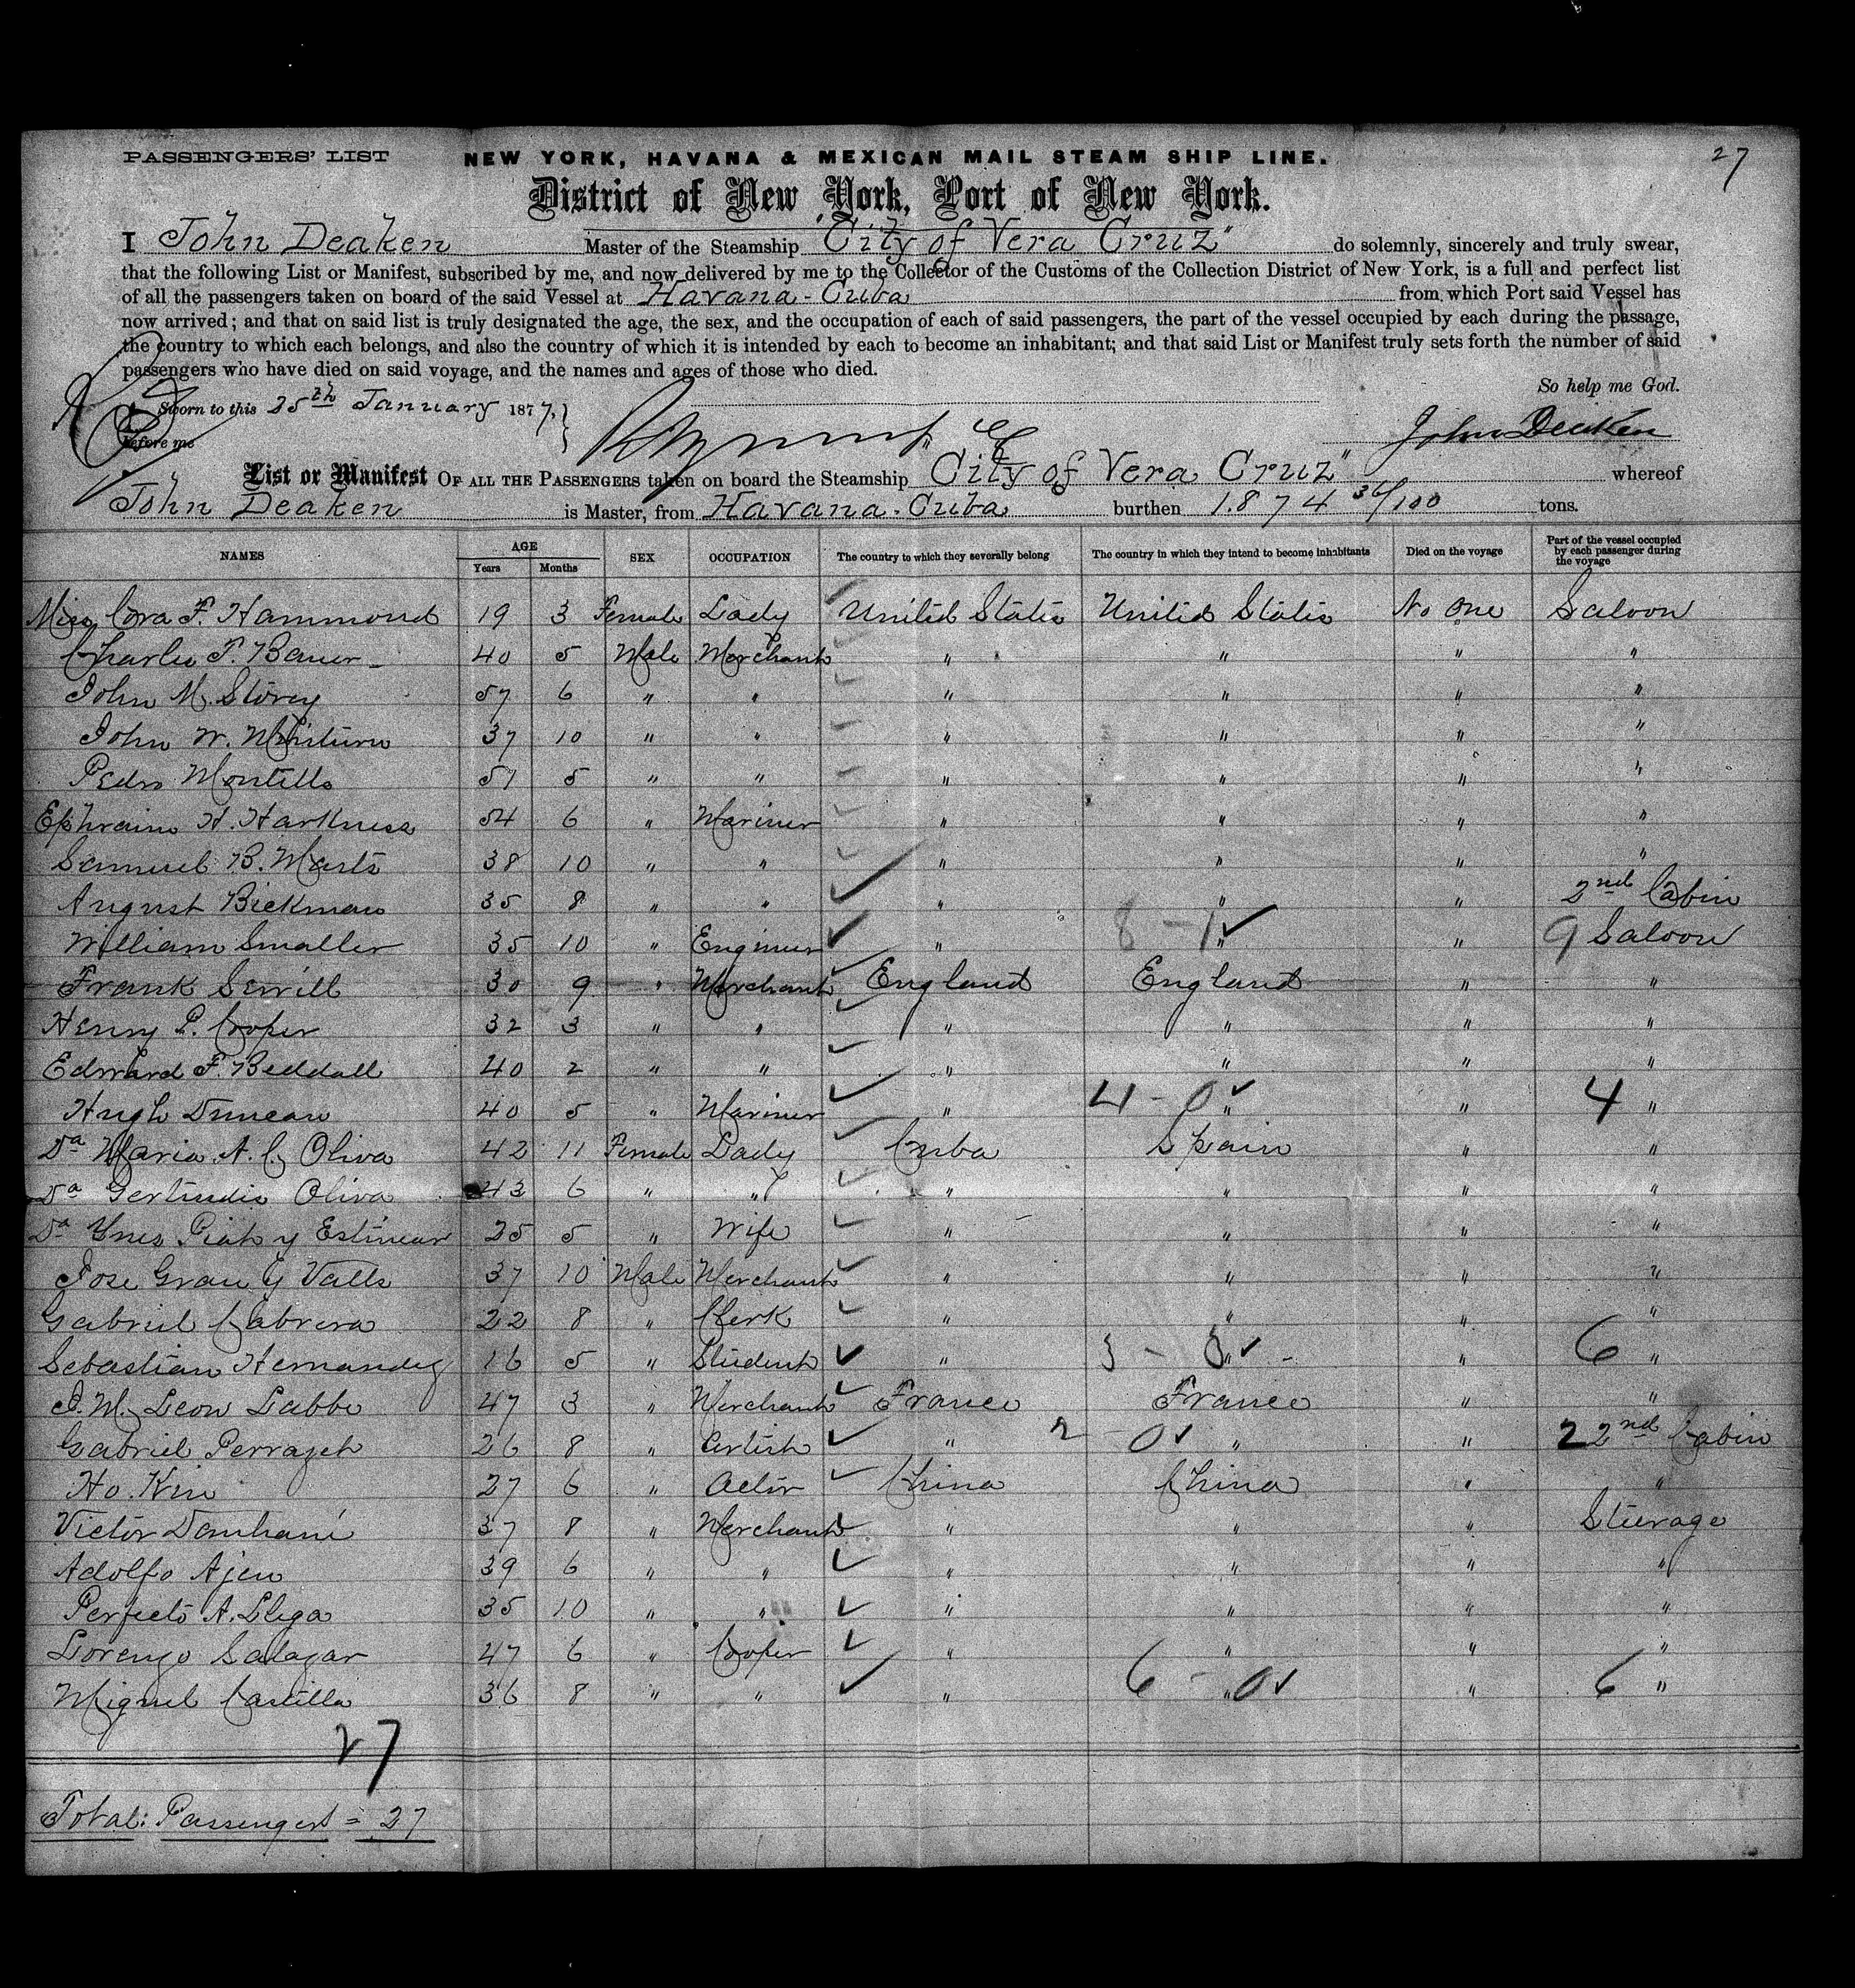 27
PASSENGERS' LIST NEW YORK, HAVANA & MEXICAN MAIL STEAM SHIP LINE.
District of New York, Port of New York.
I John Deaken Master of the Steamship "City of Vera Cruz" do solemnly, sincerely and truly swear,
that the following List or Manifest, subscribed by me, and now delivered by me to the Collector of the Customs of the Collection District of New York, is a full and perfect list
of all the passengers taken on board of the said Vessel at Havana - Cuba from which Port said Vessel has
now arrived; and that on said list is truly designated the age, the sex, and the occupation of each of said passengers, the part of the vessel occupied by each during the passage,
the country to which each belongs, and also the country of which it is intended by each to become an inhabitant; and that said List or Manifest truly sets forth the number of said
passengers who have died on said voyage, and the names and ages of those who died.
So help me God.
Sworn to this 25th January 1877,
before me
John Deaken
List or Manifest OF ALL THE PASSENGERS taken on board the Steamship "City of Vera Cruz" whereof
John Deaken is Master, from Havana - Cuba burthen 1.874 36/100 tons.
NAMES AGE Years Months SEX OCCUPATION The country to which they severally belong The country in which they intend to become inhabitants Died on the voyage Part of the vessel occupied by each passenger during the voyage
Miss Cora F. Hammond 19 3 Female Lady United States United States No One Saloon
Charles P. Bauer 40 5 Male Merchant " " " "
John M. Storey 57 6 " " " " " "
John W. Minturn 37 10 " " " " " "
Pedro Montells 57 5 " " " " " "
Ephraim H. Harkness 54 6 " Mariner " " " "
Samuel B. Marts 38 10 " " " " " "
August Bickman 35 8 " " " " " 2nd Cabin
William Smaller 35 10 " Engineer " 8 - 1 " " 9 Saloon
Frank Serrill 30 9 " Merchant England England " "
Henry P. Cooper 32 3 " " " " " "
Edward F. Beddall 40 2 " " " " " "
Hugh Duncan 40 5 " Mariner " 4 - 0 " " 4 "
Da Maria A. C. Oliva 42 11 Female Lady Cuba Spain " "
Da Gertrudis Oliva 43 6 " " " " " "
Da Ynes Piah y Estinear 25 5 " Wife " " " "
Jose Grau y Valls 37 10 Male Merchant " " " "
Gabriel Cabrera 22 8 " Clerk " " " "
Sebastian Hernandez 16 5 " Student " " " 6 "
J. M. Leon Labbe 47 3 " Merchant France France " "
Gabriel Perrazeh 26 8 " Artist " 2 0 " " 2 2nd Cabin
Ho. Kin 27 6 " Actor China China " "
Victor 37 8 " Merchant " " " Steerage
Adolfo Ajen 39 6 " " " " " "
Perfecto A. Llega 35 10 " " " " " "
Lorenzo Salazar 47 6 " Cooper " " " "
Miguel Castillo 36 8 " " " 6 - 0 " " 6 "
27
Total: Passengers = 27